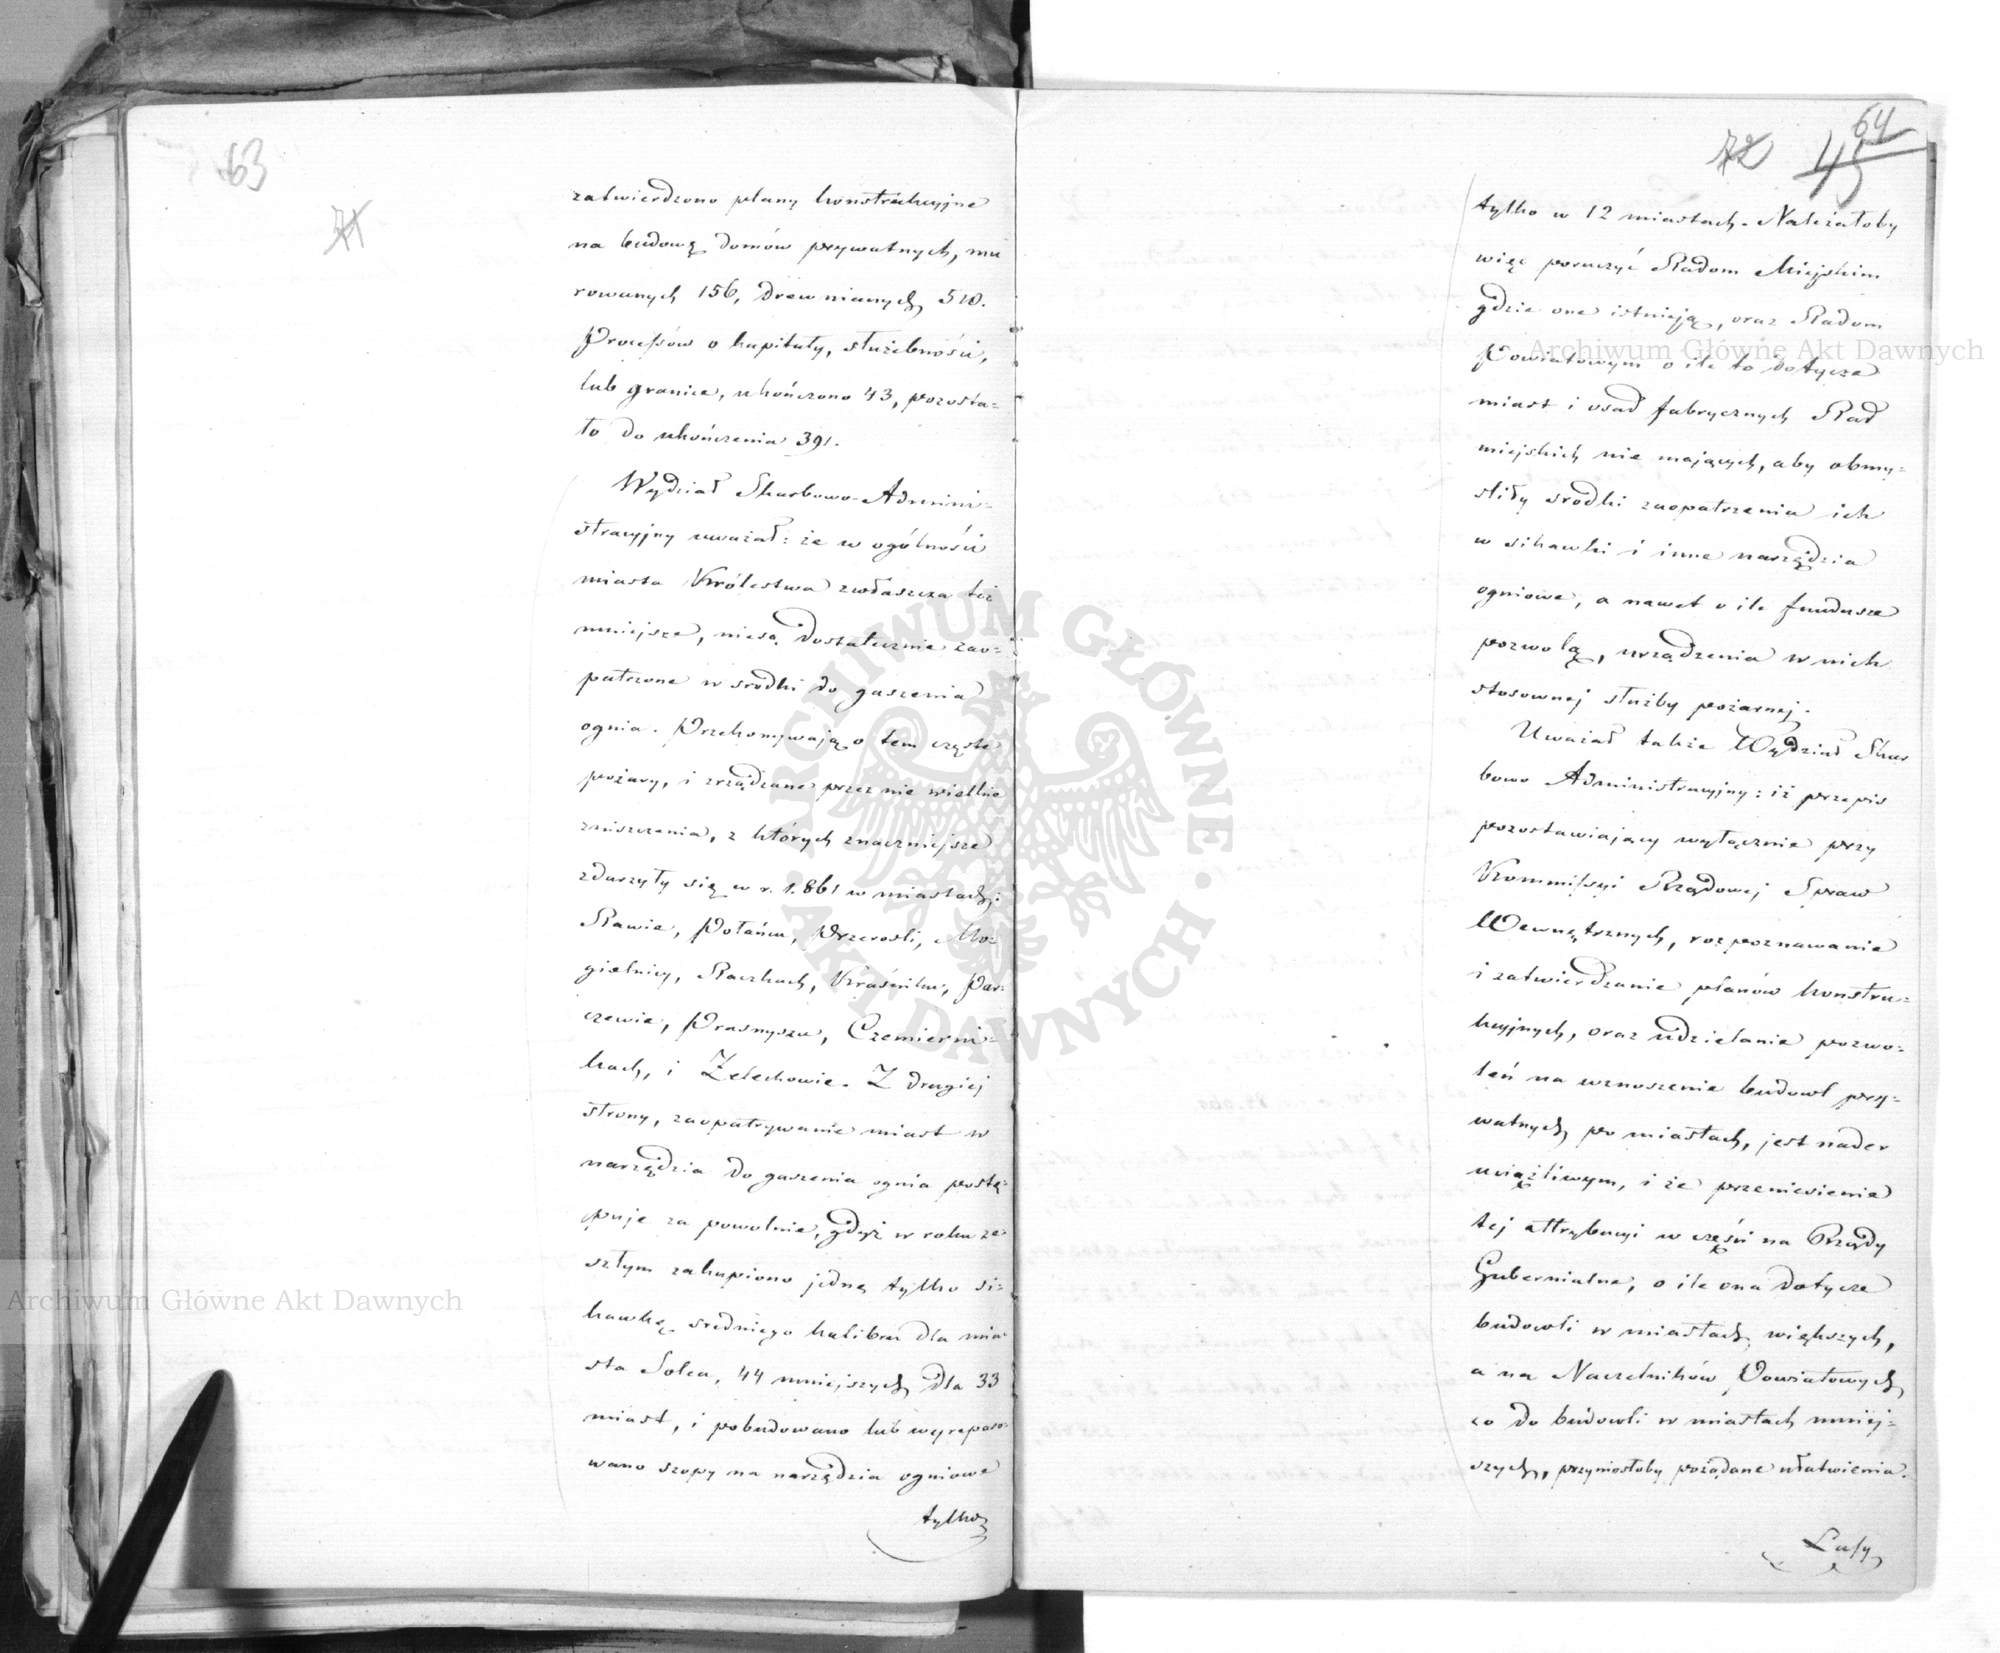 63
71
zatwierdzono plany konstrukcyjne
na budowę domów prywatnych, mu
rowanych 156, drewnianych 510.
Processów o kapitały, służebności,
lub granice, ukończono 43, pozosta=
ło do ukończenia 391.
Wydział Skarbowo-Admini=
stracyjny uważał: że w ogólności
miasta Królestwa zwłaszcza też
mniejsze, niesą dostatecznie zao=
patrzone w srodki do gaszenia
ognia. Przekonywają o tem częste
pożary, i zrządzane przez nie wielkie
zniszczenia, z których znaczniejsze
zdarzyły się w r. 1861 w miastach:
Rawie, Połańcu, Przerośli, Mo=
gielnicy, Raczkach, Kraśniku, Par=
czewie, Prasnyszu, Czemierni=
kach, i Żelechowie. Z drugiej
strony, zaopatrywanie miast w
narzędzia do gaszenia ognia postę=
puje za powolnie, gdyż w roku ze=
szłym zakupiono jedną tylko si=
kawkę sredniego kalibru dla mia=
sta Solca, 44 mniejszych dla 33
miast, i pobudowano lub wyreparo=
wano szopy na narzędzia ogniowe
tylko
72
64
45
tylko w 12 miastach. Należałoby
więc poruczyć Radom Miejskim
gdzie one istnieją, oraz Radom
Powiatowym o ile to dotycze
miast i osad fabrycznych Rad
miejskich nie mających, aby obmy=
sliły srodki zaopatrzenia ich
w sikawki i inne narzędzia
ogniowe, a nawet o ile fundusze
pozwolą, urządzenia w nich
stosownej służby pożarnej.
Uważał także Wydział Skar
bowo Administracyjny: iż przepis
pozostawiający wyłącznie przy
Kommissyi Rządowej Spraw
Wewnętrznych, rozpoznawanie
i zatwierdzanie planów konstru=
kcyjnych, oraz udzielanie pozwo=
leń na wznoszenie budowl pry=
watnych po miastach, jest nader
uciążliwym, i że przeniesienie
tej attrybucyi w części na Rządy
Gubernialne, o ile ona dotycze
budowli w miastach większych,
a na Naczelników Powiatowych
co do budowli w miastach mniej=
szych, przyniosłoby pożądane ułatwienia.
Lasy
Archiwum Główne Akt Dawnych
Archiwum Główne Akt Dawnych
ARCHIWUM GŁÓWNE AKT DAWNYCH